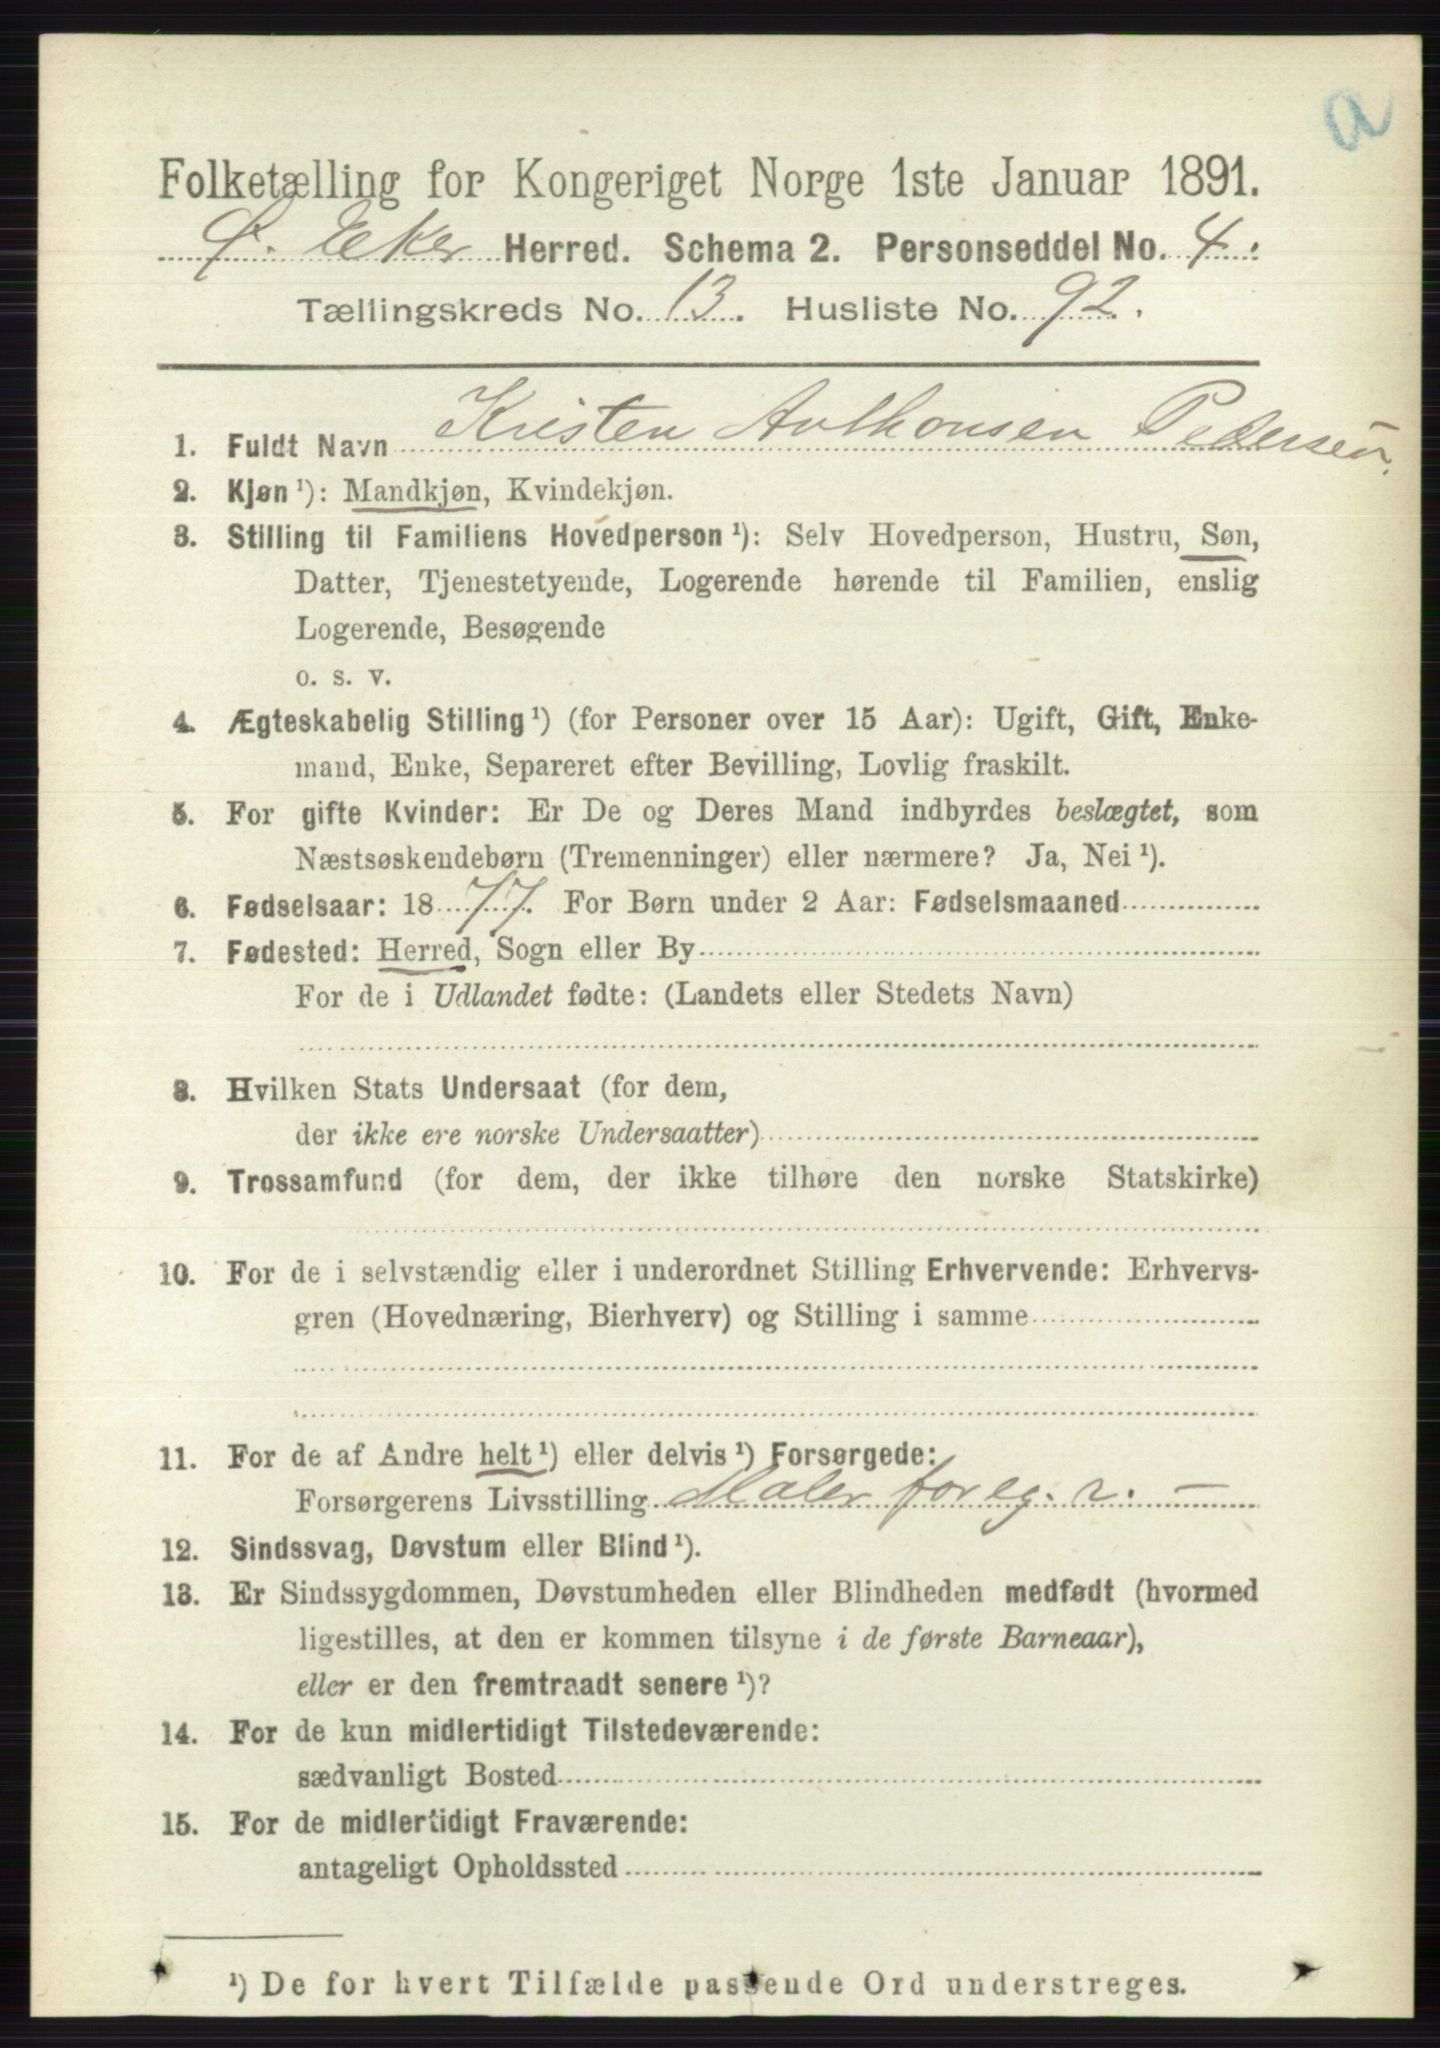 a
Folketælling for Kongeriget Norge 1ste Januar 1891.
Ø. Eker Herred. Schema 2. Personseddel No. 4.
Tællingskreds No. 13. Husliste No. 92.
1. Fuldt Navn Kristen Anthonsen Pedersen.
2. Kjøn ¹): Mandkjøn, Kvindekjøn.
3. Stilling til Familiens Hovedperson ¹): Selv Hovedperson, Hustru, Søn,
Datter, Tjenestetyende, Logerende hørende til Familien, enslig
Logerende, Besøgende
o. s. v.
4. Ægteskabelig Stilling ¹) (for Personer over 15 Aar): Ugift, Gift, Enke-
mand, Enke, Separeret efter Bevilling, Lovlig fraskilt.
5. For gifte Kvinder: Er De og Deres Mand indbyrdes beslægtet, som
Næstsøskendebørn (Tremenninger) eller nærmere? Ja, Nei ¹).
6. Fødselsaar: 1877. For Børn under 2 Aar: Fødselsmaaned
7. Fødested: Herred, Sogn eller By
For de i Udlandet fødte: (Landets eller Stedets Navn)
8. Hvilken Stats Undersaat (for dem,
der ikke ere norske Undersaatter)
9. Trossamfund (for dem, der ikke tilhøre den norske Statskirke)
10. For de i selvstændig eller i underordnet Stilling Erhvervende: Erhvervs-
gren (Hovednæring, Bierhverv) og Stilling i samme
11. For de af Andre helt ¹) eller delvis ¹) Forsørgede:
Forsørgerens Livsstilling Maler for eg. r. —
12. Sindssvag, Døvstum eller Blind ¹).
13. Er Sindssygdommen, Døvstumheden eller Blindheden medfødt (hvormed
ligestilles, at den er kommen tilsyne i de første Barneaar),
eller er den fremtraadt senere ¹)?
14. For de kun midlertidigt Tilstedeværende:
sædvanligt Bosted
15. For de midlertidigt Fraværende:
antageligt Opholdssted
¹) De for hvert Tilfælde passende Ord understreges.